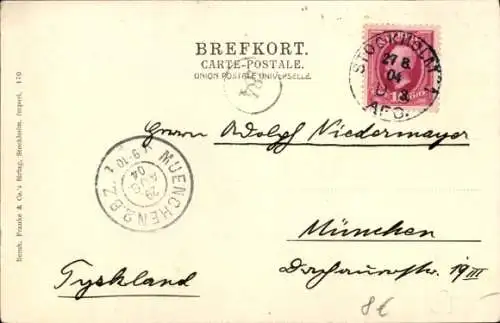 BREFKORT.
CARTE-POSTALE.
UNION POSTALE UNIVERSELLE.
STOCKHOLM
27 8.
04
AFG.
Herrn Adolph Niedermayer
München
Dachauerstr. 19 III
Tyskland
MUENCHEN 2 B.Z.
V 9-10
29
AUG
04
8€
Bernh. Franke & Co.'s förlag, Stockholm. Import. 170